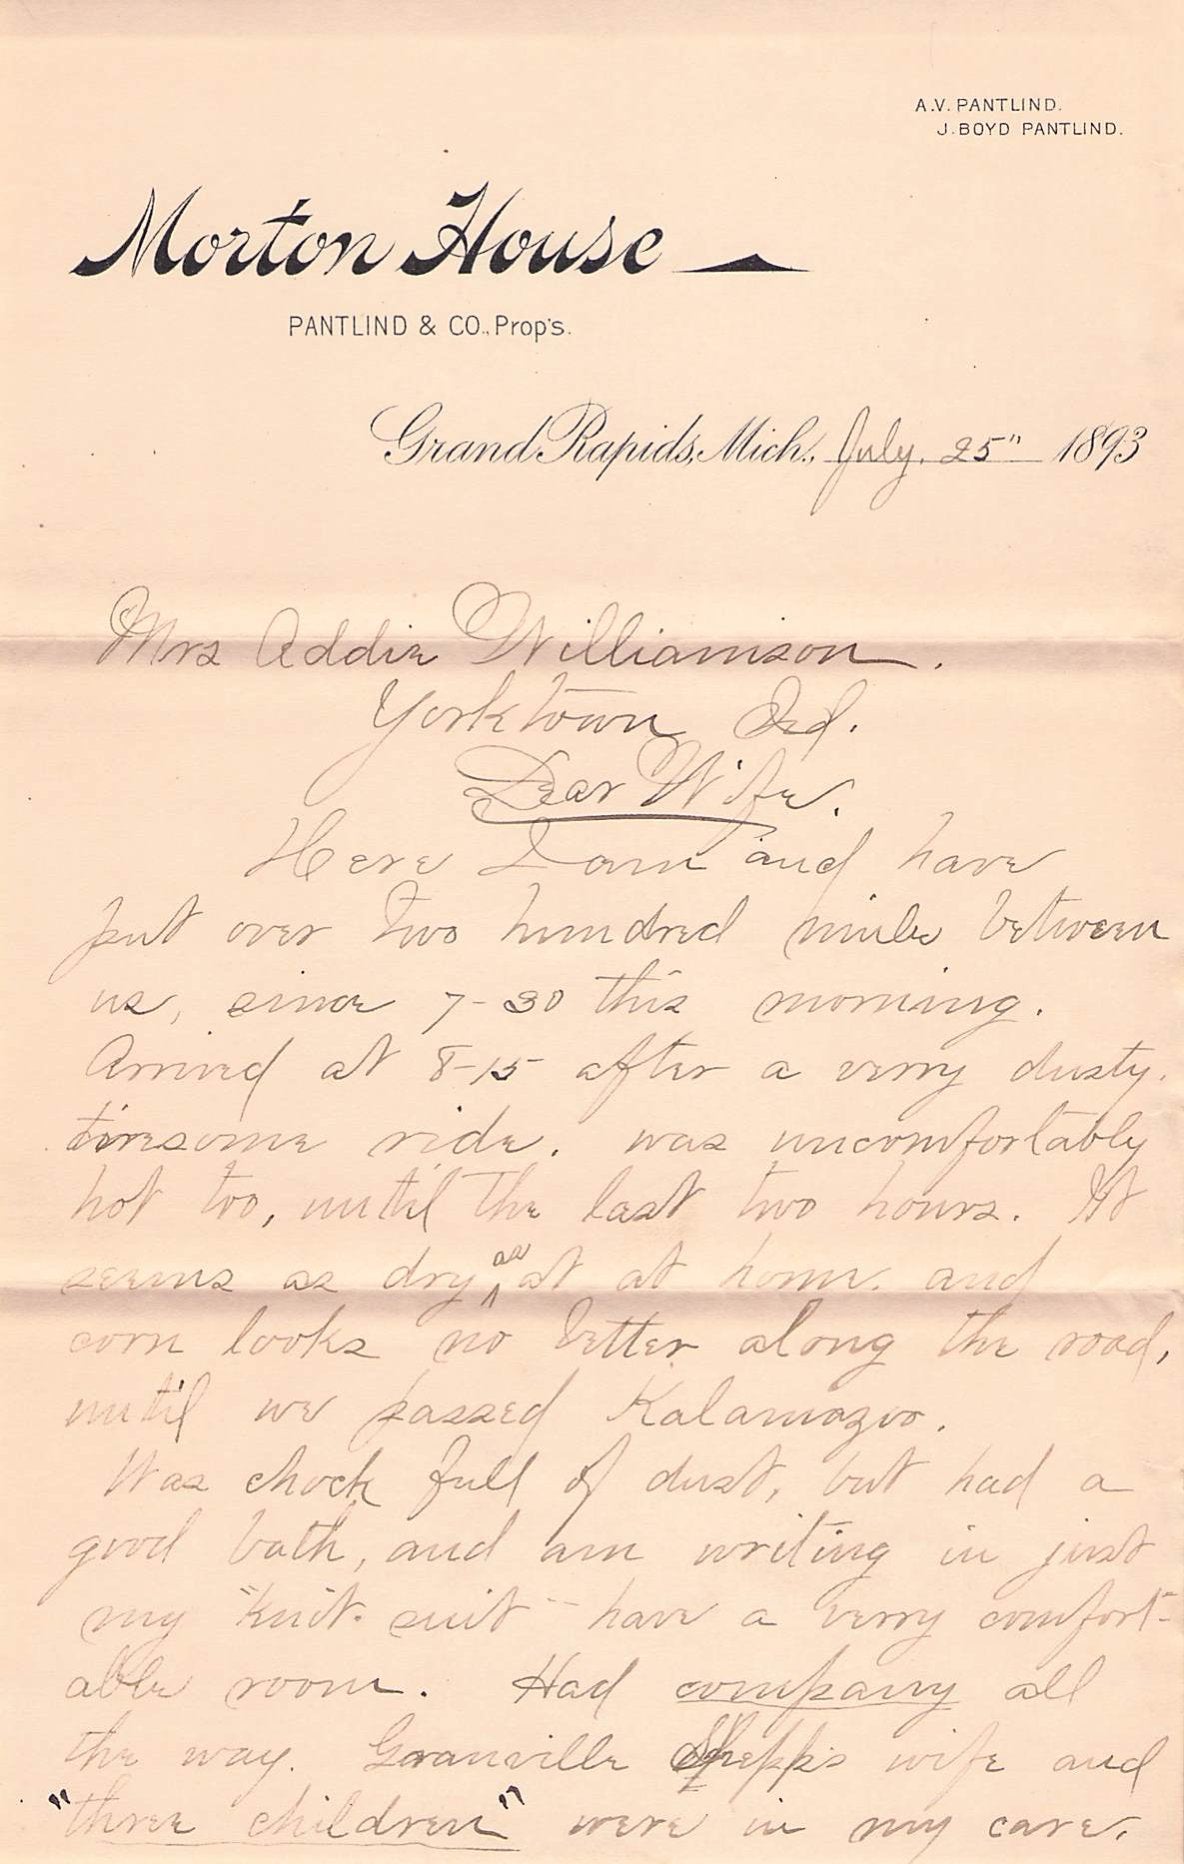 A.V. PANTLIND.
J. BOYD PANTLIND.
Morton House
PANTLIND & CO., Prop's.
Grand Rapids, Mich., July. 25" 1893
Mrs Addie Williamson.
Yorktown Ind.
Dear Wife.
Here I am and have
put over two hundred miles between
us, since 7-30 this morning.
Arrived at 8-15 after a verry dusty.
tiresome ride. was uncomfortably
hot too, until the last two hours. It
seems as dry as at at home. and
corn looks no better along the road,
until we passed Kalamazoo.
Was chock full of dust, but had a
good bath, and am writing in just
my "Knit. suit" have a verry comfort-
able room. Had company all
the way. Granville wife and
"three children" were in my care.